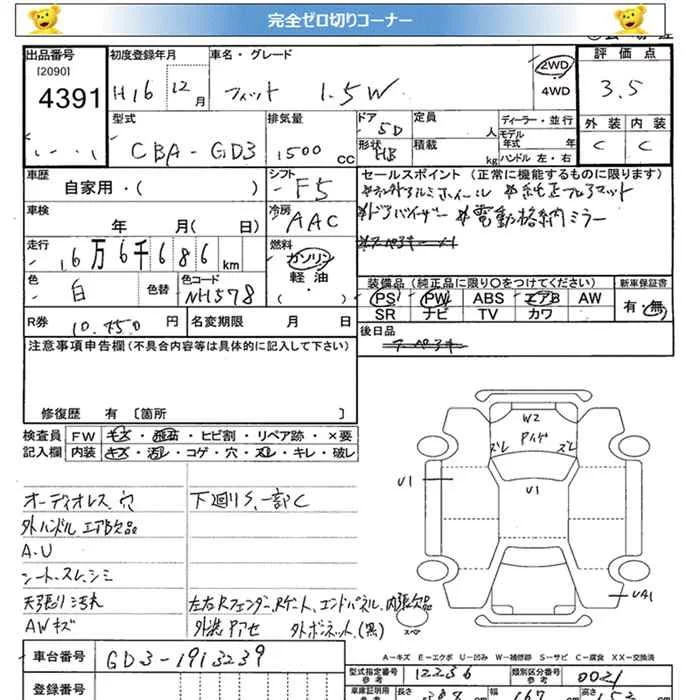 完全ゼロ切りコーナー
出品番号 初度登録年月 車名・グレード 評価点
[2090]
4391 H16 12月 フィット 1.5W 2WD 4WD 3.5
型式 排気量 ドア 定員 ディーラー・並行 外装 内装
CBA-GD3 1500 CC 5D 人 モデル年式 年式
形状 HB 積載 kg ハンドル 左・右 C C
車歴 シフト セールスポイント(正常に機能するものに限ります)
自家用・( ) F5 純正フロアマット
車検 冷房 ドアバイザー 電動格納ミラー
年 月( 日) AAC
走行 燃料
16万6千686km ガソリン 軽・油 ・( )
色 色替 色コード 装備品(純正品に限り〇をつけてください) 新車保証書
白 NH578 PS PW ABS エアB AW 有・無
SR ナビ TV カワ
R券 10.450円 名変期限 月 日 後日品
注意事項申告欄(不具合内容等は具体的に記入して下さい)
修復歴 有 〔箇所 〕
検査員 FW キズ・飛石・ヒビ割・リペア跡・×要
記入欄 内装 キズ・汚れ・コゲ・穴・スレ・キレ・破レ
W2
ズレ ズレ
U1 U1
オーディオレス、穴 下廻りS、一部C
外ハンドル エアB欠品
A.U
シートスレ、シミ
天張り汚れ 左右Rフェンダー、Rゲート、エンドパネル、内張欠品
AWキズ 外装 外ボンネット(黒)
スペア
A-キズ E-エクボ U-凹み W-補修跡 S-サビ C-腐食 XX-交換済
車台番号 GD3-1913239 型式指定番号 参考 12236 類別区分番号 参考 0021
登録番号 車庫証明用 参考 長さ cm 幅 167 cm 高さ 152